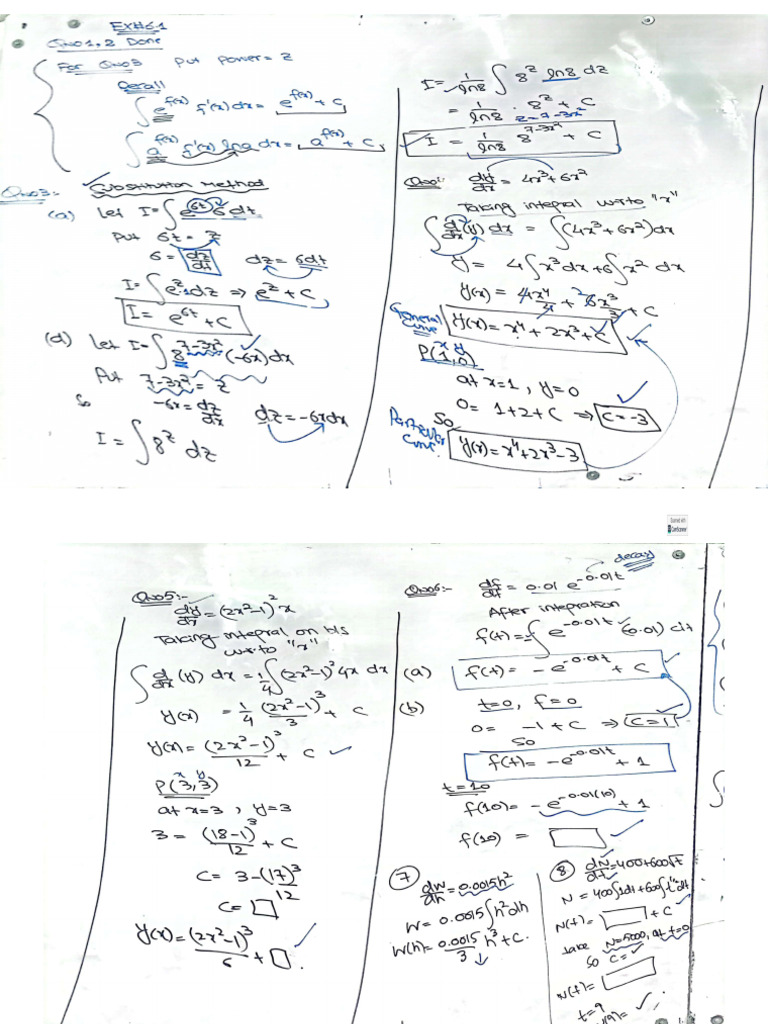 Ex#6.1
Qno1,2 Done
For Qno3 put Power = z
Recall
∫ e^f(x) f'(x) dx = e^f(x) + C
∫ a^f(x) f'(x) ln a dx = a^f(x) + C
Qno3:- Substitution Method
(a) let I = ∫ e^6t 6 dt
Put 6t = z
6 = dz/dt dz = 6dt
I = ∫ e^z.1 dz ⇒ e^z + C
I = e^6t + C
(d) let I = ∫ 8^(7-3x²) (-6x) dx
Put 7-3x² = z
So -6x = dz/dx dz = -6x dx
I = ∫ 8^z dz
I = 1/ln8 ∫ 8^z ln8 dz
= 1/ln8 . 8^z + C
z = 7-3x²
I = 1/ln8 8^(7-3x²) + C
dy/dx = 4x³+6x²
Taking integral w.r.to "x"
∫ d/dx (y) dx = ∫(4x³+6x²)dx
y = 4∫x³dx+6∫x² dx
y(x) = 4x⁴/4 + 6x³/3 + C
General Curve y(x) = x⁴ + 2x³ + C
x y
P(1,0)
at x=1, y=0
0 = 1+2+C ⇒ C=-3
So
Particular Curve. y(x) = x⁴+2x³-3
Scanned with
CamScanner
Qno5:-
dy/dx = (2x²-1)² x
Taking integral on b/s
w.r.to "x"
∫ d/dx (y) dx = 1/4 ∫(2x²-1)² 4x dx
y(x) = 1/4 (2x²-1)³/3 + C
y(x) = (2x²-1)³/12 + C
x y
P(3,3)
at x=3, y=3
3 = (18-1)³/12 + C
C = 3-(17)³/12
C = □
y(x) = (2x²-1)³/6 + □
decay
Qno6:- df/dt = 0.01 e^-0.01t
After integration
f(t) = -∫ e^-0.01t (-0.01) dt
(a) f(t) = -e^-0.01t + C
(b) t=0, f=0
0 = -1+C ⇒ C=1
So
f(t) = -e^-0.01t + 1
t=10
f(10) = -e^-0.01(10) + 1
f(10) = □
7 dw/dh = 0.0015h²
w = 0.0015∫h²dh
w(h) = 0.0015/3 h³ + C.
8 dN/dt = 400+600√t
N = 400∫1dt+600∫t^½ dt
N(t) = □ + C
take N=5000, at t=0
So C=
N(t) = □
t=9